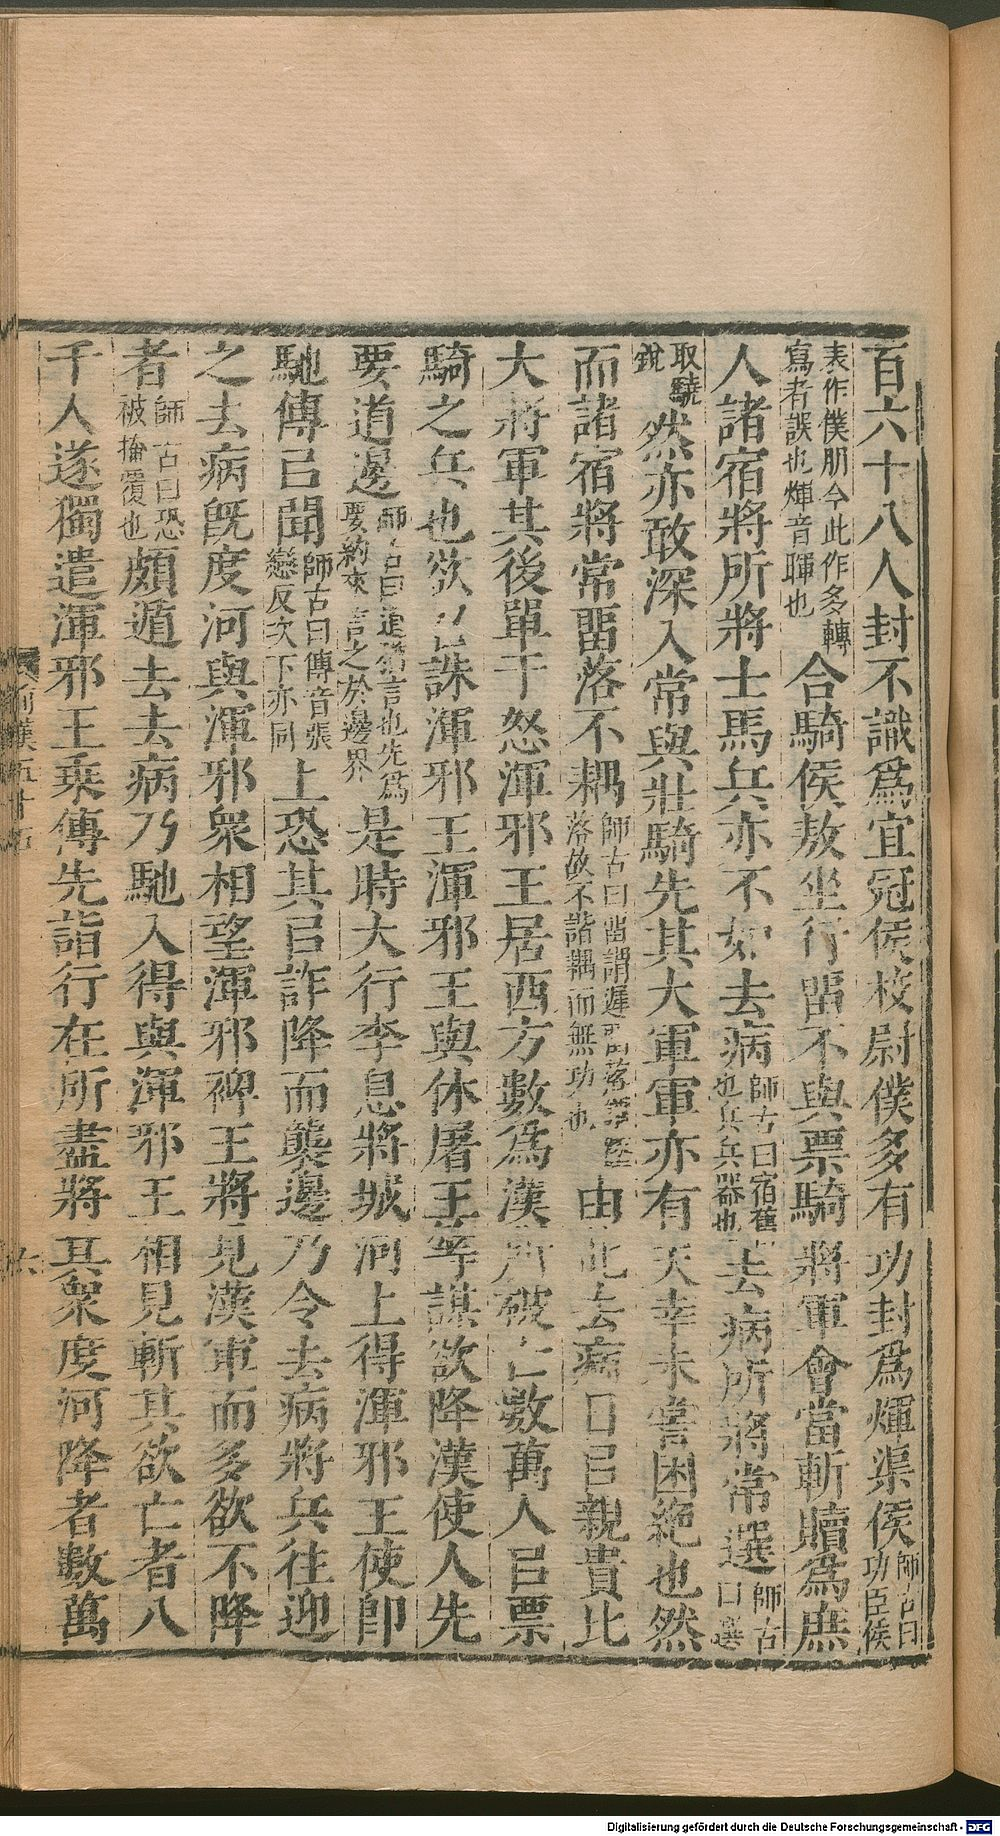 百六十八人封不識爲宜冠侯校尉僕多有功封爲煇渠侯師古曰功臣侯
表作僕朋今此作多轉寫者誤也煇音暉也合騎侯敖坐行留不與票騎將軍會當斬贖爲庶
人諸宿將所將士馬兵亦不如去病師古曰宿舊也兵兵器也去病所將常選師古曰選
取驍銳然亦敢深入常與壯騎先其大軍軍亦有天幸未嘗困絶也然
而諸宿將常留落不耦師古曰留謂遲留落謂墜落故不諧耦而無功也由此去病日㠯親貴比
大將軍其後單于怒渾邪王居西方數爲漢所破亡數萬人㠯票
騎之兵也欲召誅渾邪王渾邪王與休屠王等謀欲降漢使人先
要道邊師古曰道猶言也先爲要約來言之於邊界是時大行李息將城河上得渾邪王使即
馳傳㠯聞師古曰傳音張戀反次下亦同上恐其㠯詐降而襲邊乃令去病將兵往迎
之去病旣度河與渾邪衆相望渾邪裨王將見漢軍而多欲不降
者師古曰恐被掩覆也頗遁去去病乃馳入得與渾邪王相見斬其欲亡者八
千人遂獨遣渾邪王乘傳先詣行在所盡將其衆度河降者數萬
前漢五十五
六
Digitalisierung gefördert durch die Deutsche Forschungsgemeinschaft - DFG